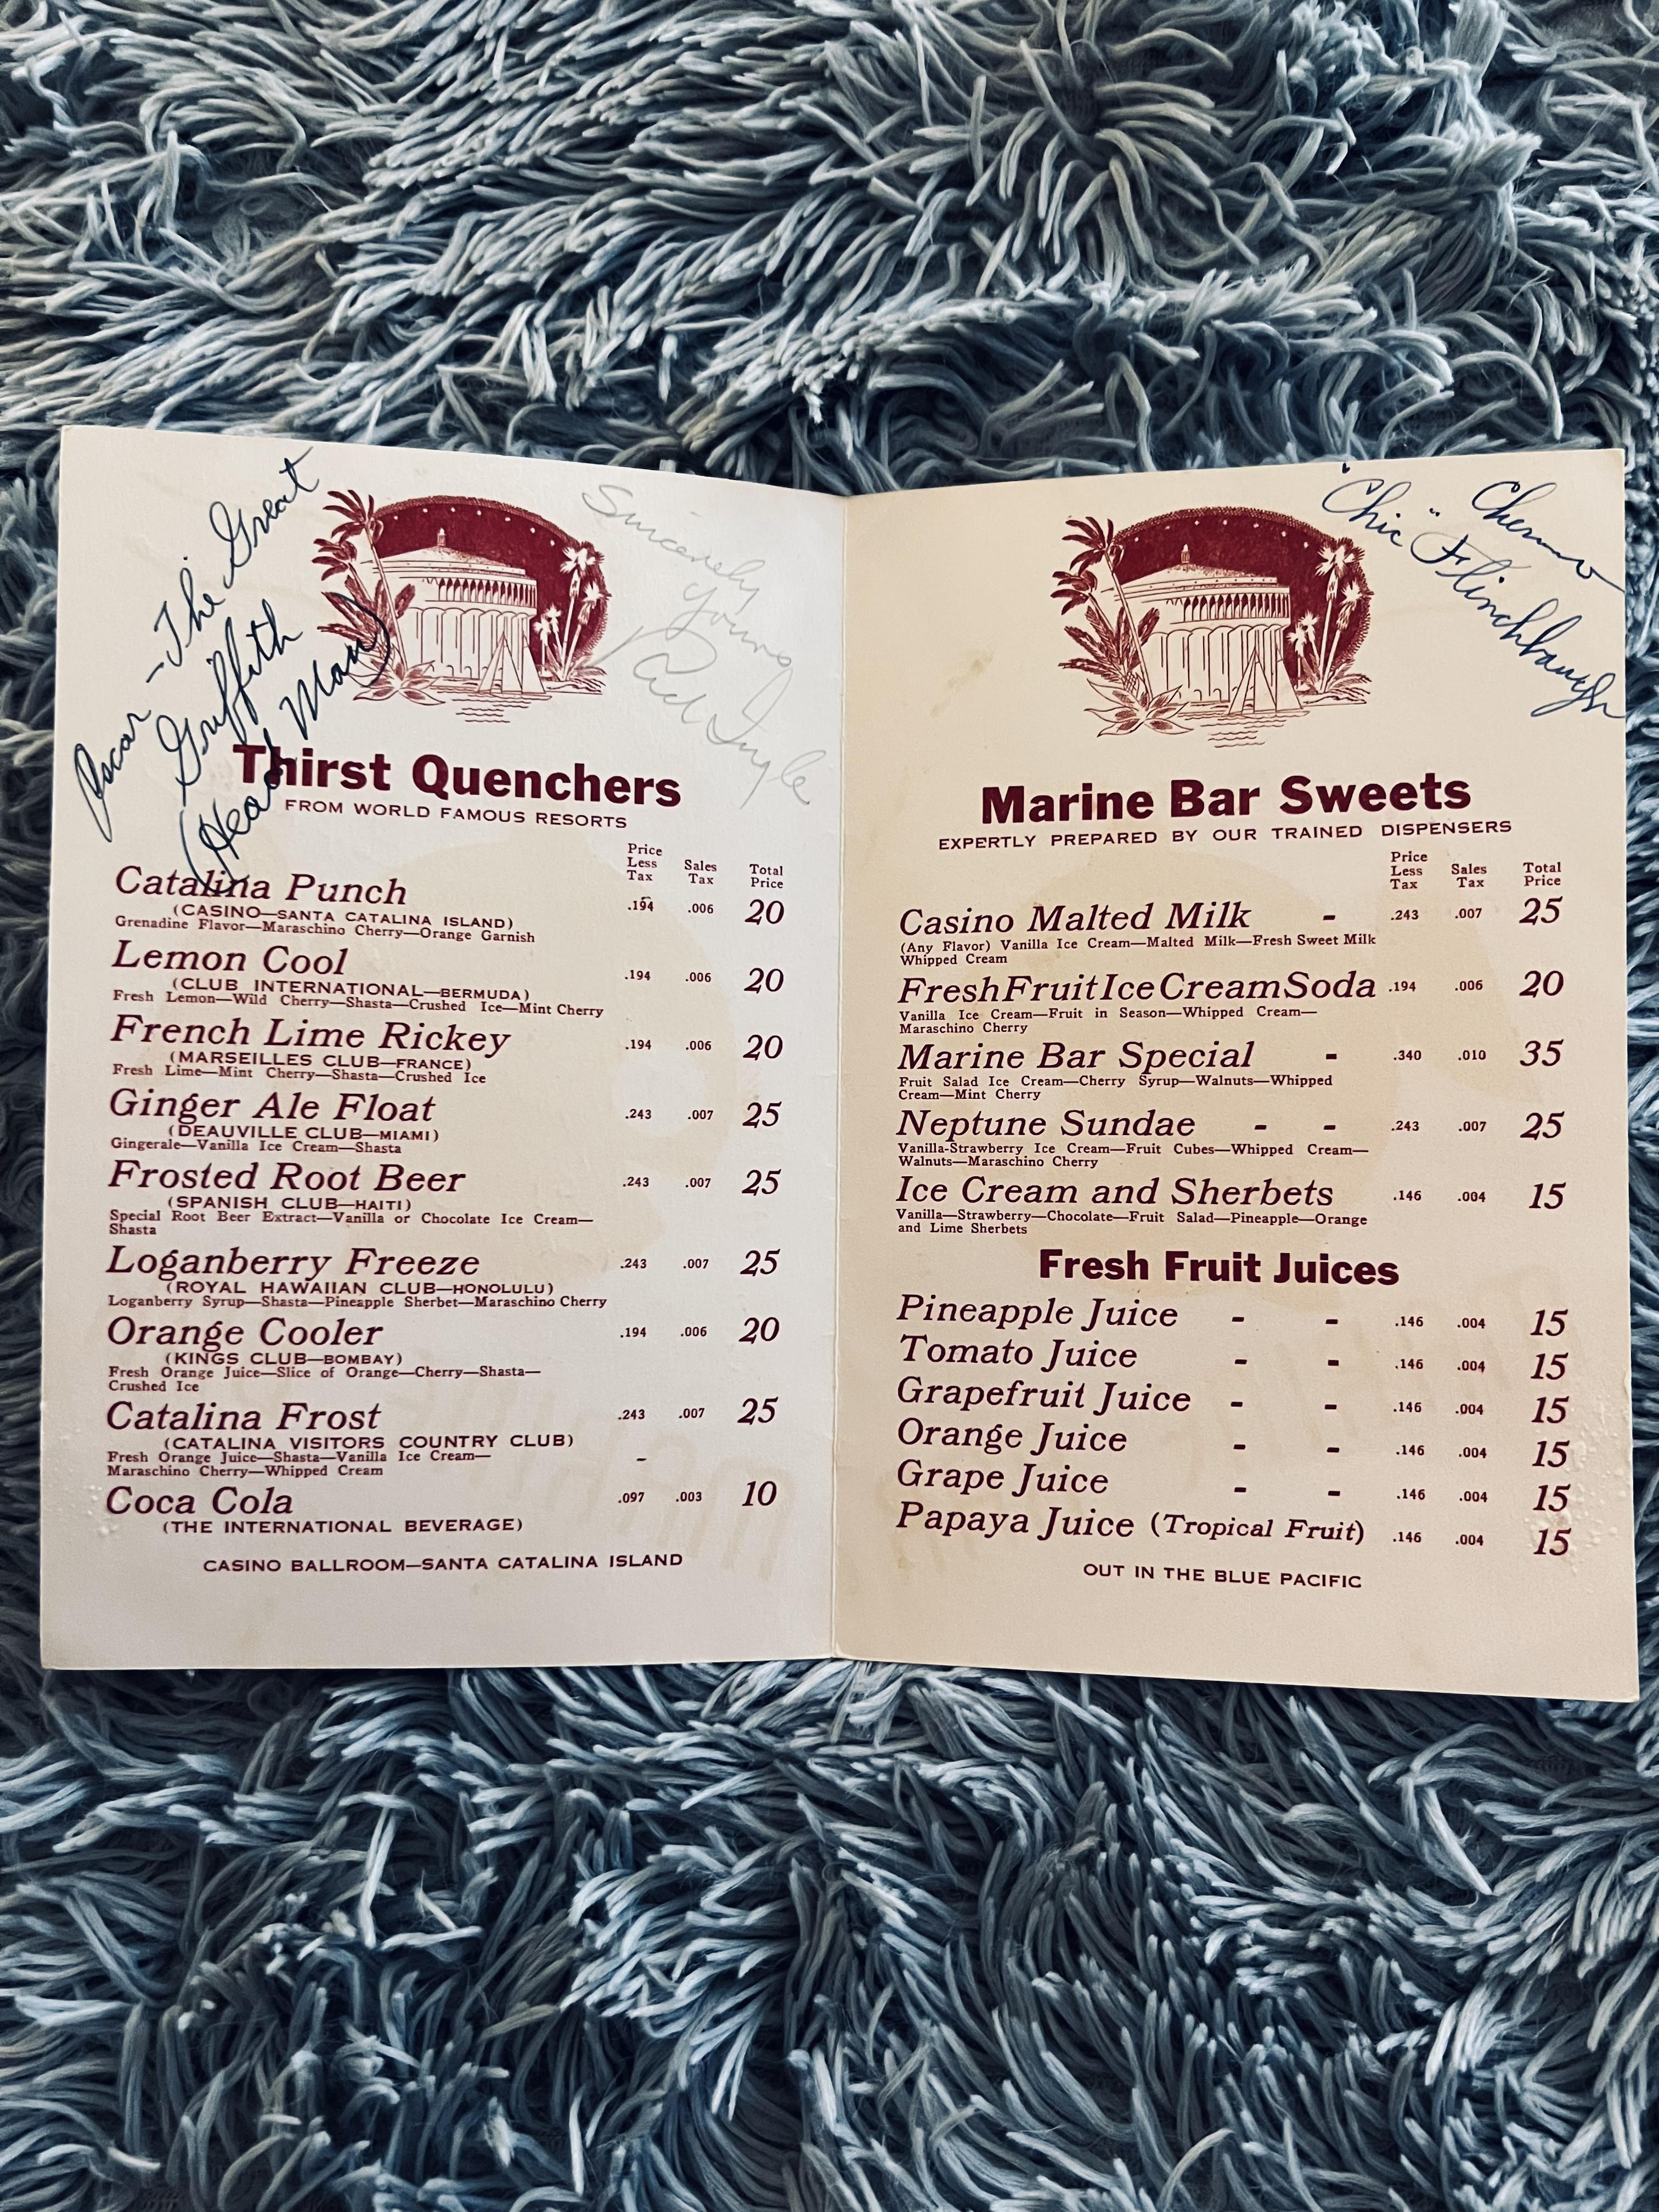 Oscar - The Great
Griffith
(Head Man)
Sincerely
yours
Red Ingle
Thirst Quenchers
FROM WORLD FAMOUS RESORTS
Price Less Tax Sales Tax Total Price
Catalina Punch .194 .006 20
(CASINO—SANTA CATALINA ISLAND)
Grenadine Flavor—Maraschino Cherry—Orange Garnish
Lemon Cool .194 .006 20
(CLUB INTERNATIONAL—BERMUDA)
Fresh Lemon—Wild Cherry—Shasta—Crushed Ice—Mint Cherry
French Lime Rickey .194 .006 20
(MARSEILLES CLUB—FRANCE)
Fresh Lime—Mint Cherry—Shasta—Crushed Ice
Ginger Ale Float .243 .007 25
(DEAUVILLE CLUB—MIAMI)
Gingerale—Vanilla Ice Cream—Shasta
Frosted Root Beer .243 .007 25
(SPANISH CLUB—HAITI)
Special Root Beer Extract—Vanilla or Chocolate Ice Cream—
Shasta
Loganberry Freeze .243 .007 25
(ROYAL HAWAIIAN CLUB—HONOLULU)
Loganberry Syrup—Shasta—Pineapple Sherbet—Maraschino Cherry
Orange Cooler .194 .006 20
(KINGS CLUB—BOMBAY)
Fresh Orange Juice—Slice of Orange—Cherry—Shasta—
Crushed Ice
Catalina Frost .243 .007 25
(CATALINA VISITORS COUNTRY CLUB)
Fresh Orange Juice—Shasta—Vanilla Ice Cream— -
Maraschino Cherry—Whipped Cream
Coca Cola .097 .003 10
(THE INTERNATIONAL BEVERAGE)
CASINO BALLROOM—SANTA CATALINA ISLAND
"Chic" Flinchbaugh
Marine Bar Sweets
EXPERTLY PREPARED BY OUR TRAINED DISPENSERS
Price Less Tax Sales Tax Total Price
Casino Malted Milk - .243 .007 25
(Any Flavor) Vanilla Ice Cream—Malted Milk—Fresh Sweet Milk
Whipped Cream
Fresh Fruit Ice Cream Soda .194 .006 20
Vanilla Ice Cream—Fruit in Season—Whipped Cream—
Maraschino Cherry
Marine Bar Special - .340 .010 35
Fruit Salad Ice Cream—Cherry Syrup—Walnuts—Whipped
Cream—Mint Cherry
Neptune Sundae - - .243 .007 25
Vanilla-Strawberry Ice Cream—Fruit Cubes—Whipped Cream—
Walnuts—Maraschino Cherry
Ice Cream and Sherbets .146 .004 15
Vanilla—Strawberry—Chocolate—Fruit Salad—Pineapple—Orange
and Lime Sherbets
Fresh Fruit Juices
Pineapple Juice - - .146 .004 15
Tomato Juice - - .146 .004 15
Grapefruit Juice - - .146 .004 15
Orange Juice - - .146 .004 15
Grape Juice - - .146 .004 15
Papaya Juice (Tropical Fruit) .146 .004 15
OUT IN THE BLUE PACIFIC